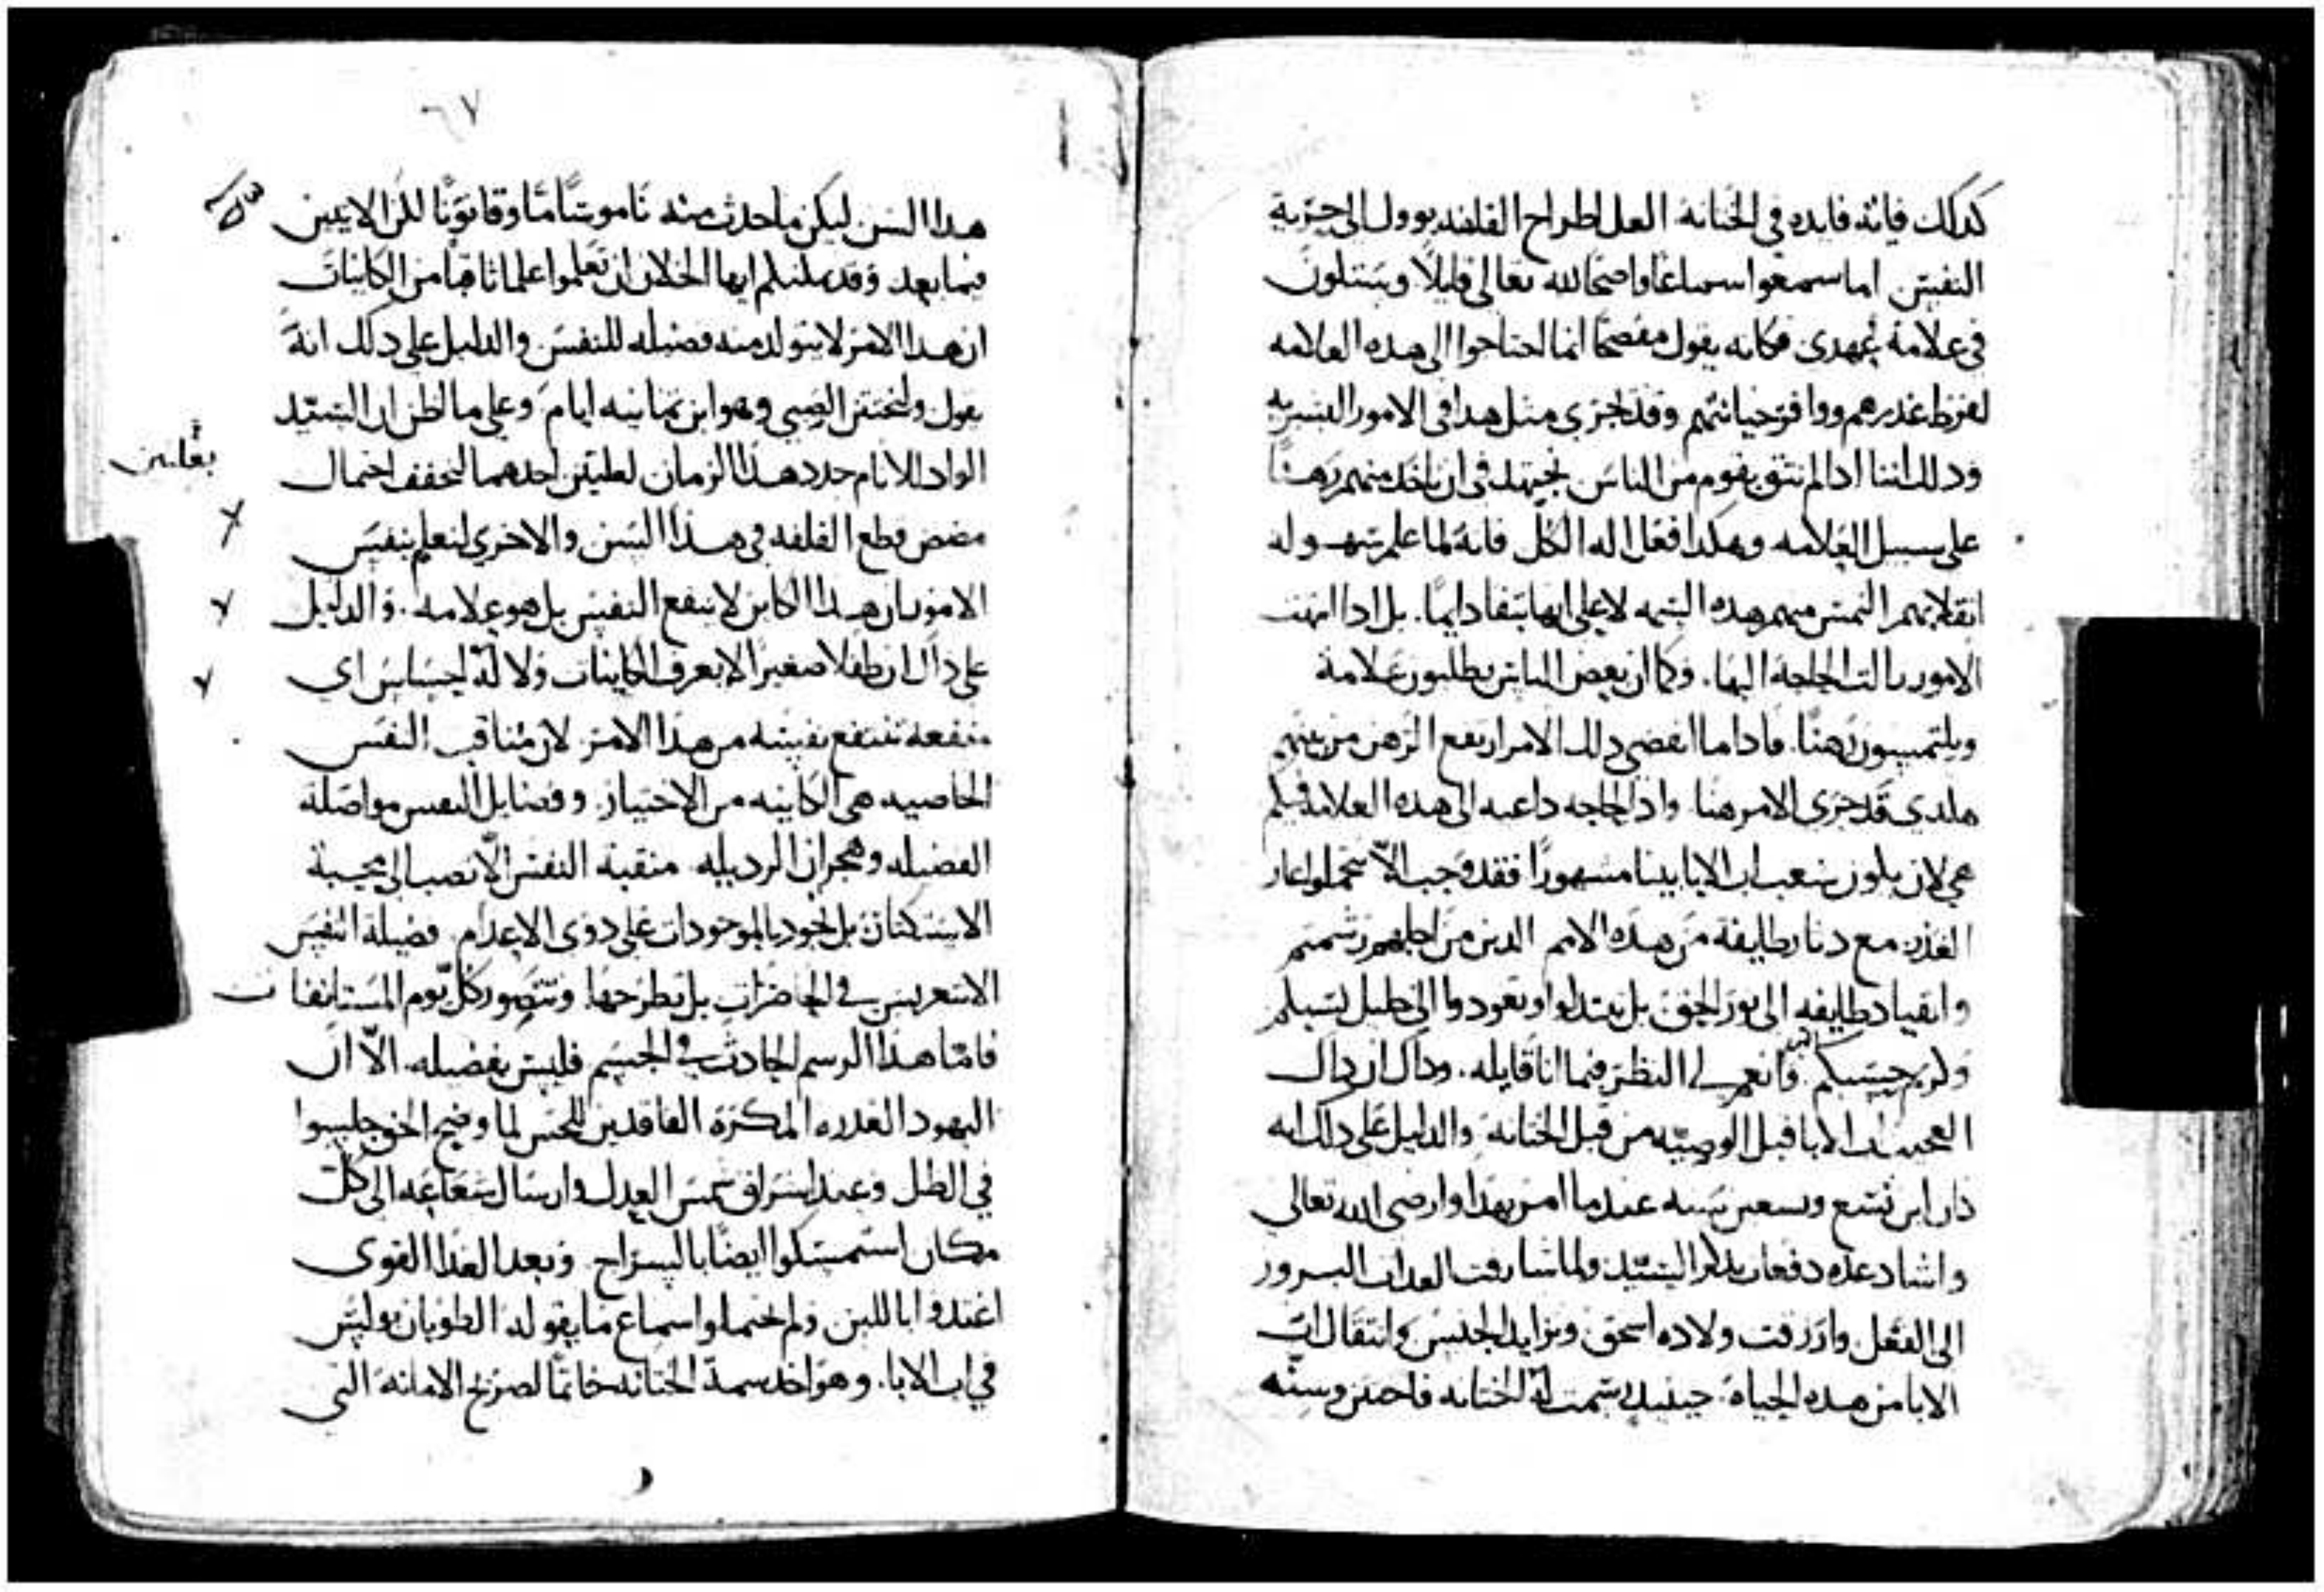 كدلك فايه فايده في الختانه العل اطراح القلفه يوول الى حرية
النفس اما سمعوا سماعا واضحا لله تعالى قايلا وستكون
في علامة عهدي فكانه يقول مفصحا انما احتاجوا الى هده العلامه
لفرط غدرهم ووافر خيانتهم وقد يجري مثل هدا في الامور البشريه
ودلك اننا ادا لم نثق بقوم من الناس نجتهد في ان ناخد منهم رهنا
على سبيل العلامه وهكدا فعل اله الكل فانه لما علم سهوله
انقلابهم التمس منهم هده السمه لا على انها تبقا دايما. بل ادا انتهت
الامور زالت الحاجة اليها. وكما ان بعض الناس يطلبون علامة
ويلتمسون رهنا. فادا ما انقضى دلك الامر ارتفع الرهن من بينهم
هكدي قد جرى الامر هنا واد الحاجه داعيه الى هده العلامه
هي لان يكون شعب اب الابا بينا مشهورا فقد وجب الا تحتملوا عار
الغدر مع دثار طايفة من هده الامم الدين من اجلهم رشمتم
وانقياد طايفه الى نور الحق بل تبتدلوا وتعودوا الى
ولزيم حسبكم. وانعم لي النظر فيما انا قايله. وداك ان داك
العجيب اب الابا قبل الوصيه من قبل الختانة والدليل على دلك انه
كان ابن تسع وتسعين سنه عندما امر بهدا وارضى الله تعالى
واشاد عده دفعات بدكر السيد ولما شارفت العدات البرور
الى الفعل وازفت ولاده اسحق وتزايد الجنس وانتقال اب
الابا من هده الحياة. حينيد رسمت له الختانه فاختتن وسنه
٦٧
هدا السن ليكن ما حدث منه ناموسا ما وقانونا للدين الاتين
فيما بعد وقد يمكنكم ايها الخلان ان تعلموا علما ثاقبا من الكاينات
ان هدا الامر لا يتولد منه فضيله للنفس والدليل على دلك انه
يقول وليختتن الصبي وهو ابن تمانيه ايام وعلى ما اظن ان السيد
الواد للانام حدد هدا الزمان لعلتين احدهما لتخفف احتمال
بعلتين
مضض قطع القلفه في هذا السن والاخرى لنعلم بنفس
الامور ان هدا الكاين لا ينفع النفس بل هو علامه. والدليل
على داك ان طفلا صغيرا لا يعرف الكاينات ولا له احساس اي
منفعه تنتفع نفسه من هدا الامر لان مناقب النفس
الخاصيه هي الكاينه من الاختيار. وفضايل النفس مواصلة
الفضيله وهجران الرديله منقبة النفس الا تصب الى محبة
الاستكثار بل تجود بالموجودات على دوي الاعدام فضيلة النفس
الا تتعربس في الحاضرات بل تطرحها وتتصور كل يوم المستانفات
فاما هدا الرسم الحادث في الجسم فليس بفضيله. الا ان
اليهود الغدره المكرة الفاقدين للحس لما وضح الحق جلسوا
في الظل وعند اشراق شمس العدل وارسال شعاعه الى كل
مكان استمسكوا ايضا بالسراج وبعد الغدا القوى
اغتدوا باللبن ولم يحتملوا سماع ما يقوله الطوبان بوليس
في اب الابا. وهو اخد سمة الختانه خاتما لصريح الامانه التي